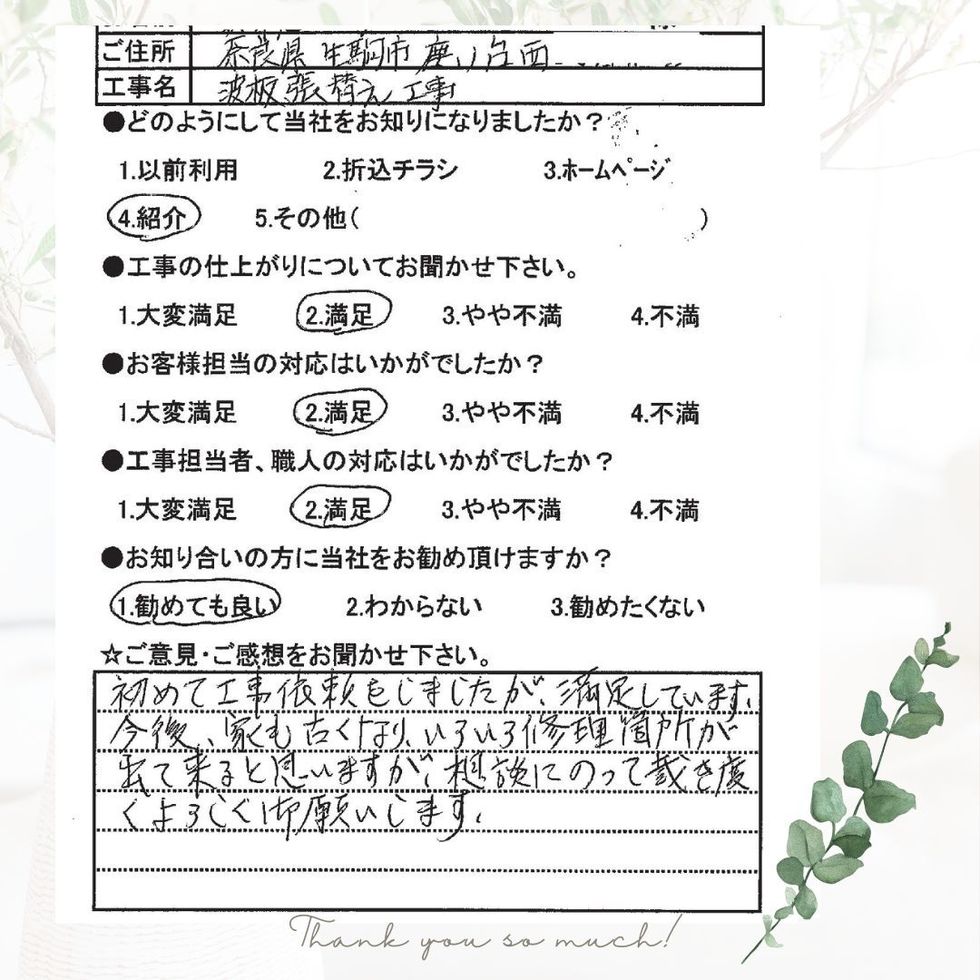 ご住所 奈良県 生駒市 鹿ノ台西
工事名 波板張替え工事
●どのようにして当社をお知りになりましたか?
1.以前利用 2.折込チラシ 3.ホームページ
4.紹介 5.その他( )
●工事の仕上がりについてお聞かせ下さい。
1.大変満足 2.満足 3.やや不満 4.不満
●お客様担当の対応はいかがでしたか?
1.大変満足 2.満足 3.やや不満 4.不満
●工事担当者、職人の対応はいかがでしたか?
1.大変満足 2.満足 3.やや不満 4.不満
●お知り合いの方に当社をお勧め頂けますか?
1.勧めても良い 2.わからない 3.勧めたくない
☆ご意見・ご感想をお聞かせ下さい。
初めて工事依頼をしましたが、満足しています。
今後、家も古くなり、いろいろ修理箇所が
出て来ると思いますが、相談にのって戴き度
くよろしく御願いします。
Thank you so much!